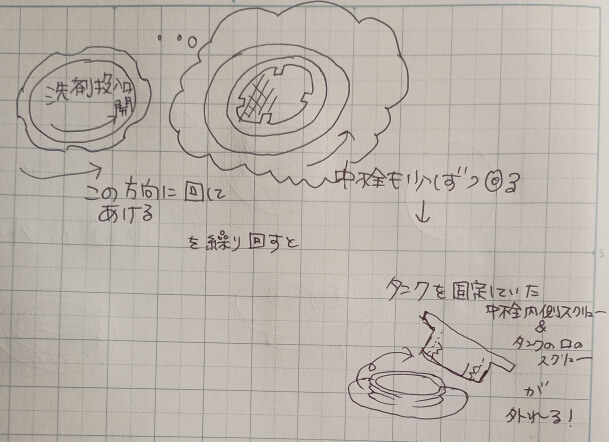 洗剤投入口
開
この方向に回して
あける
中栓も少しずつ回る
↓
を繰り回すと
タンクを固定していた
中栓内側スクリュー
&
タンクの口の
スクリュー
が
外れ〜る!